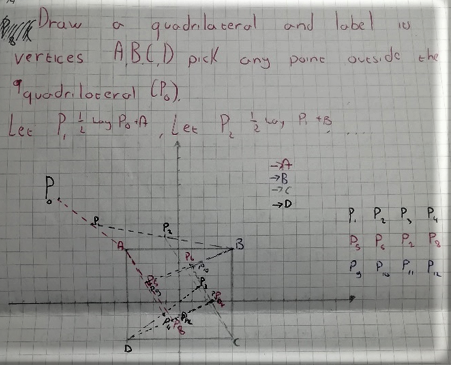 Draw a quadrilateral and label is
vertices A,B,C,D pick any point outside the
quadrilateral (P0).
Let P1 1/2 way P0+A, Let P2 1/2 way P1+B, ....
→A
→B
→C
→D
P0
P1 P2
A B
D C
P1 P2 P3 P4
P5 P6 P7 P8
P9 P10 P11 P12